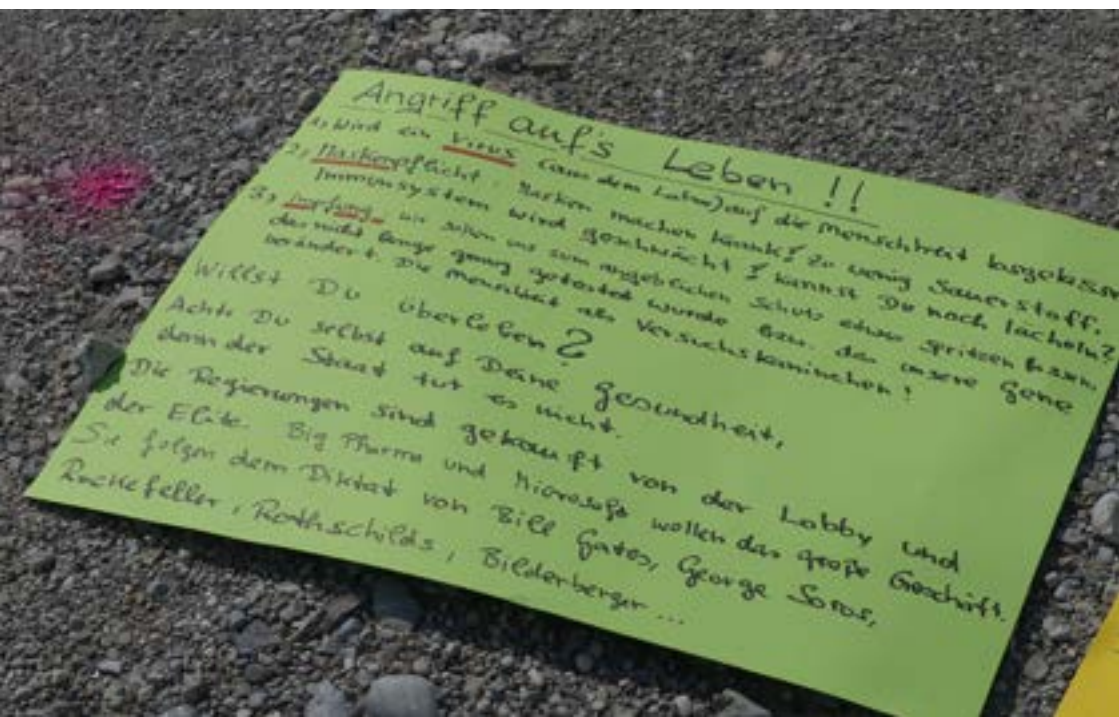 Angriff auf's Leben !!
1, Wird ein Virus (aus dem Labor) auf die Menschheit losgelassen
2, Maskenpflicht: Masken machen krank! Zu wenig Sauerstoff.
Immunsystem wird geschwächt! Kannst Du noch lächeln?
3, Impfung wir sollen uns zum angeblichen Schutz etwas spritzen lassen
das nicht lange genug getestet wurde bzw. das unsere Gene
verändert. Die Menschheit als Versuchskaninchen!
Willst Du überleben?
Achte Du selbst auf Deine Gesundheit,
denn der Staat tut es nicht.
Die Regierungen sind gekauft von der Lobby und
der Elite. Big Pharma und Microsoft wollen das große Geschäft.
Sie folgen dem Diktat von Bill Gates, George Soros,
Rockefeller, Rothschilds, Bilderberger...